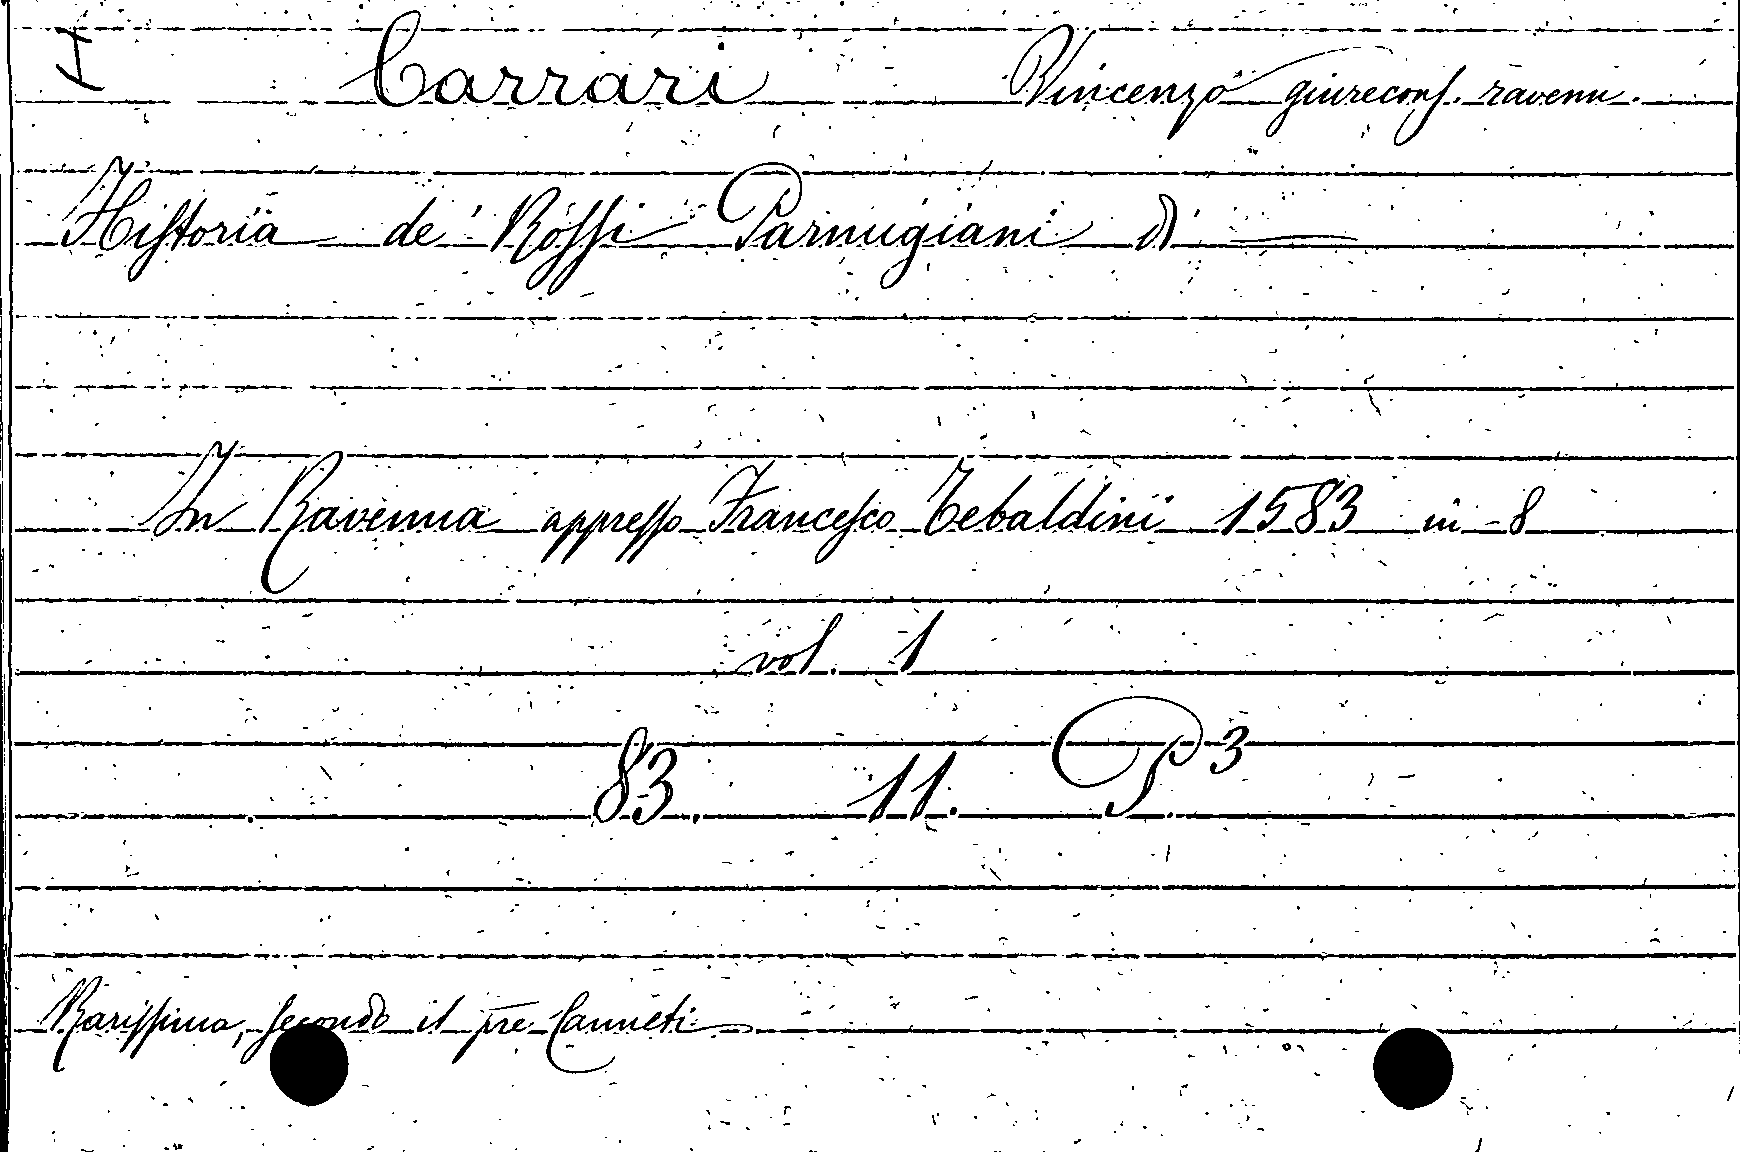 I Carrari Vincenzo giureconſ. ravenn.
Hiſtoria de' Roſſi Parmigiani di —
In Ravenna appreſſo Franceſco Tebaldini 1583 in-8
vol. 1
83. 11. P.3
Rariſſima, ſecondo il pre Canneti